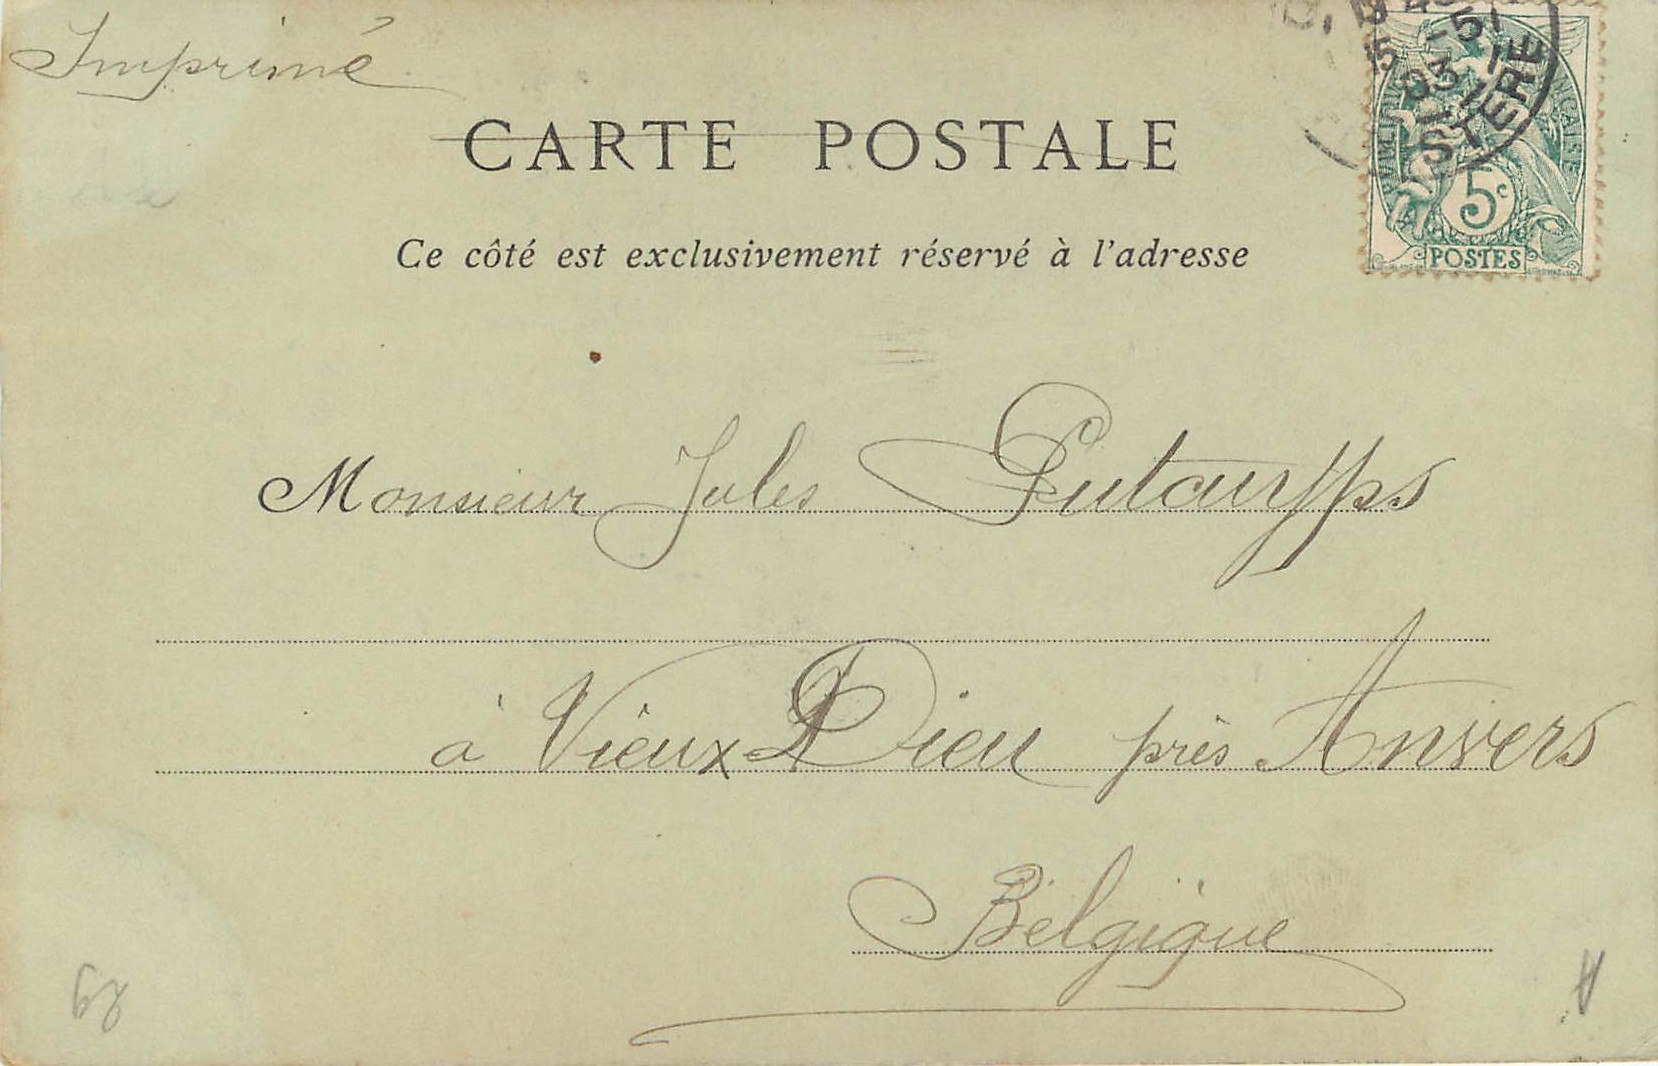 Imprimé
CARTE POSTALE
Ce côté est exclusivement réservé à l'adresse
-51
03
ISTERE
5c
POSTES
Monsieur Jules
à Vieux Dieu près Anvers
Belgique